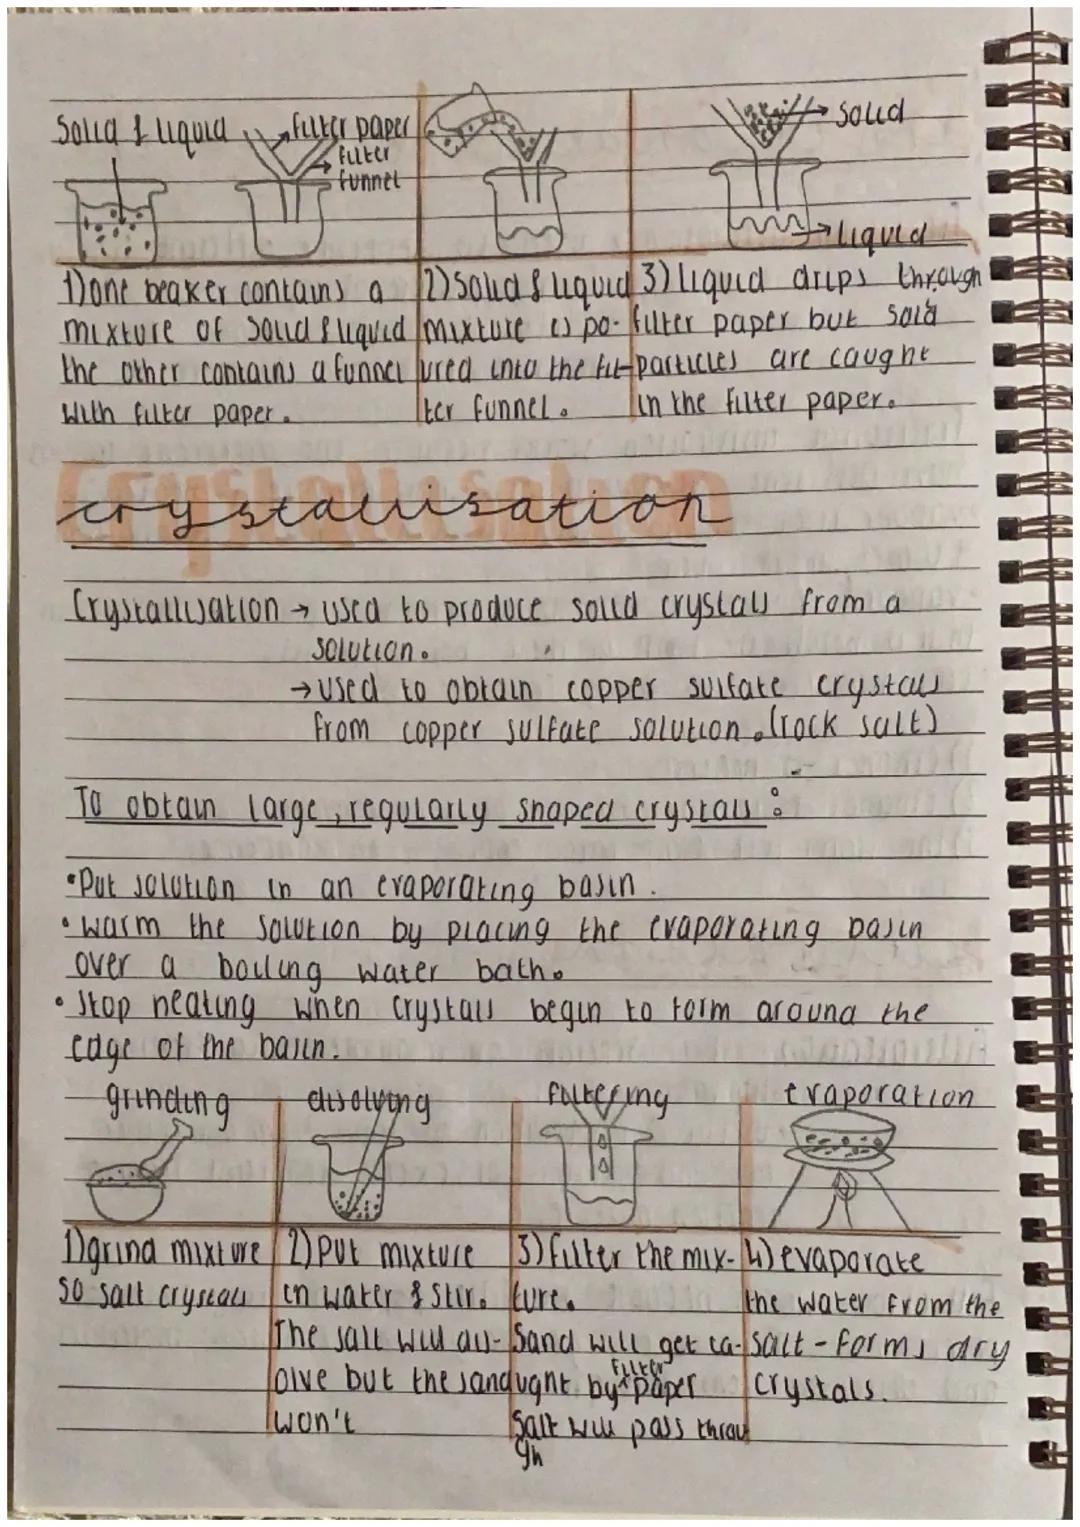 Solid & liquid
filter paper
filter
funnel
solid
liquid
1) one beaker contains a
mixture of solid & liquid
the other contains a funnel
with filter paper.
2) Solid & liquid
mixture is po-
ured into the fil-
ter funnel.
3) liquid drips through
filter paper but solid
particles are caught
in the filter paper.
crystallisation
Crystallisation → used to produce solid crystals from a
solution.
→ used to obtain copper sulfate crystals
from copper sulfate solution. (rock salt)
To obtain large, regularly shaped crystals:
• Put solution in an evaporating basin.
• warm the solution by placing the evaporating basin
over a boiling water bath.
• Stop heating when crystals begin to form around the
edge of the basin.
grinding
disolving
filtering
evaporation
1) grind mixture
so salt crystals
2) put mixture
in water & stir.
The salt will dis-
olve but the sand
won't
3) filter the mix-
ture.
Sand will get ca-
ught by filter paper
Salt will pass throu
gh
4) evaporate
the water from the
salt - forms dry
crystals.